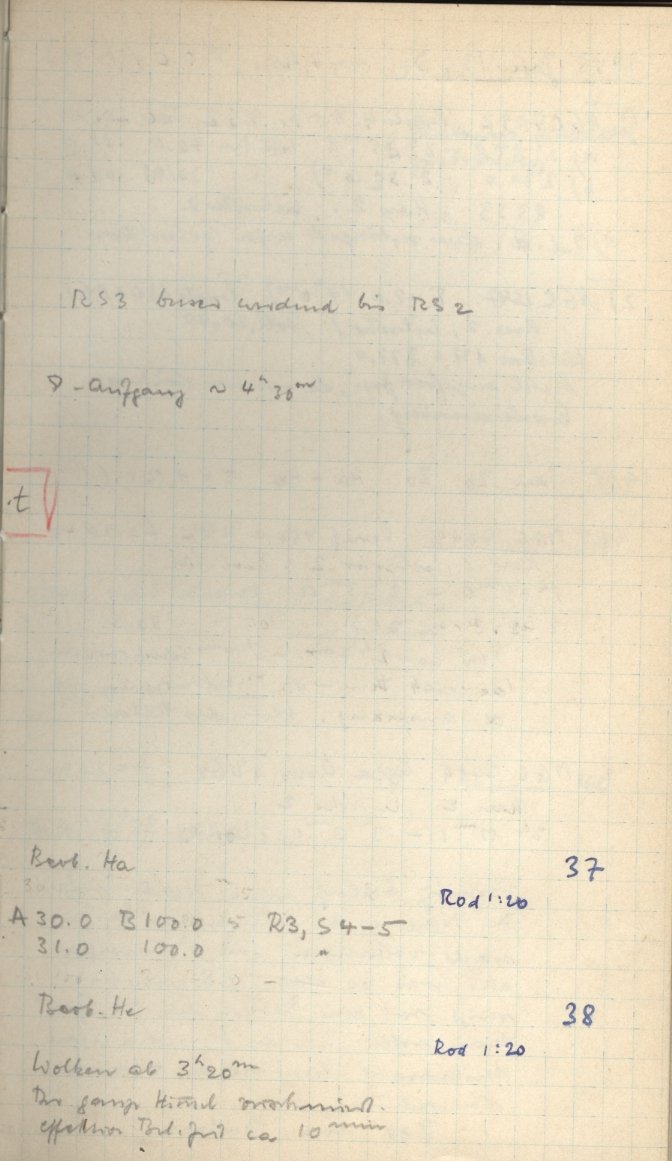 RS3 besser werdend bis RS2
☽-Aufgang ~ 4ʰ30ᵐ
.t
Beob. Ha
37
Rod 1:20
A 30.0 B 100.0 5 R3, S4-5
31.0 100.0 "
Beob. He
38
Rod 1:20
Wolken ab 3ʰ20ᵐ
Der ganze Himmel verschmiert.
effektive Bel. Zeit ca 10 min